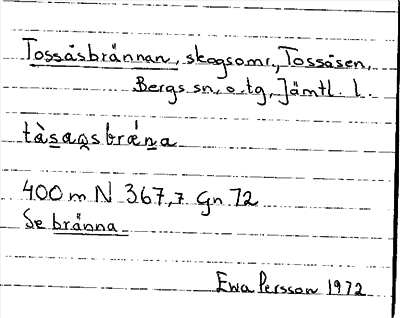 Tossåsbrännan, skogsomr., Tossåsen,
Bergs sn. o. tg, Jämtl. l.
tàsaŋsbrǽna
400 m N 367,7 Gn 72
Se bränna
Ewa Persson 1972